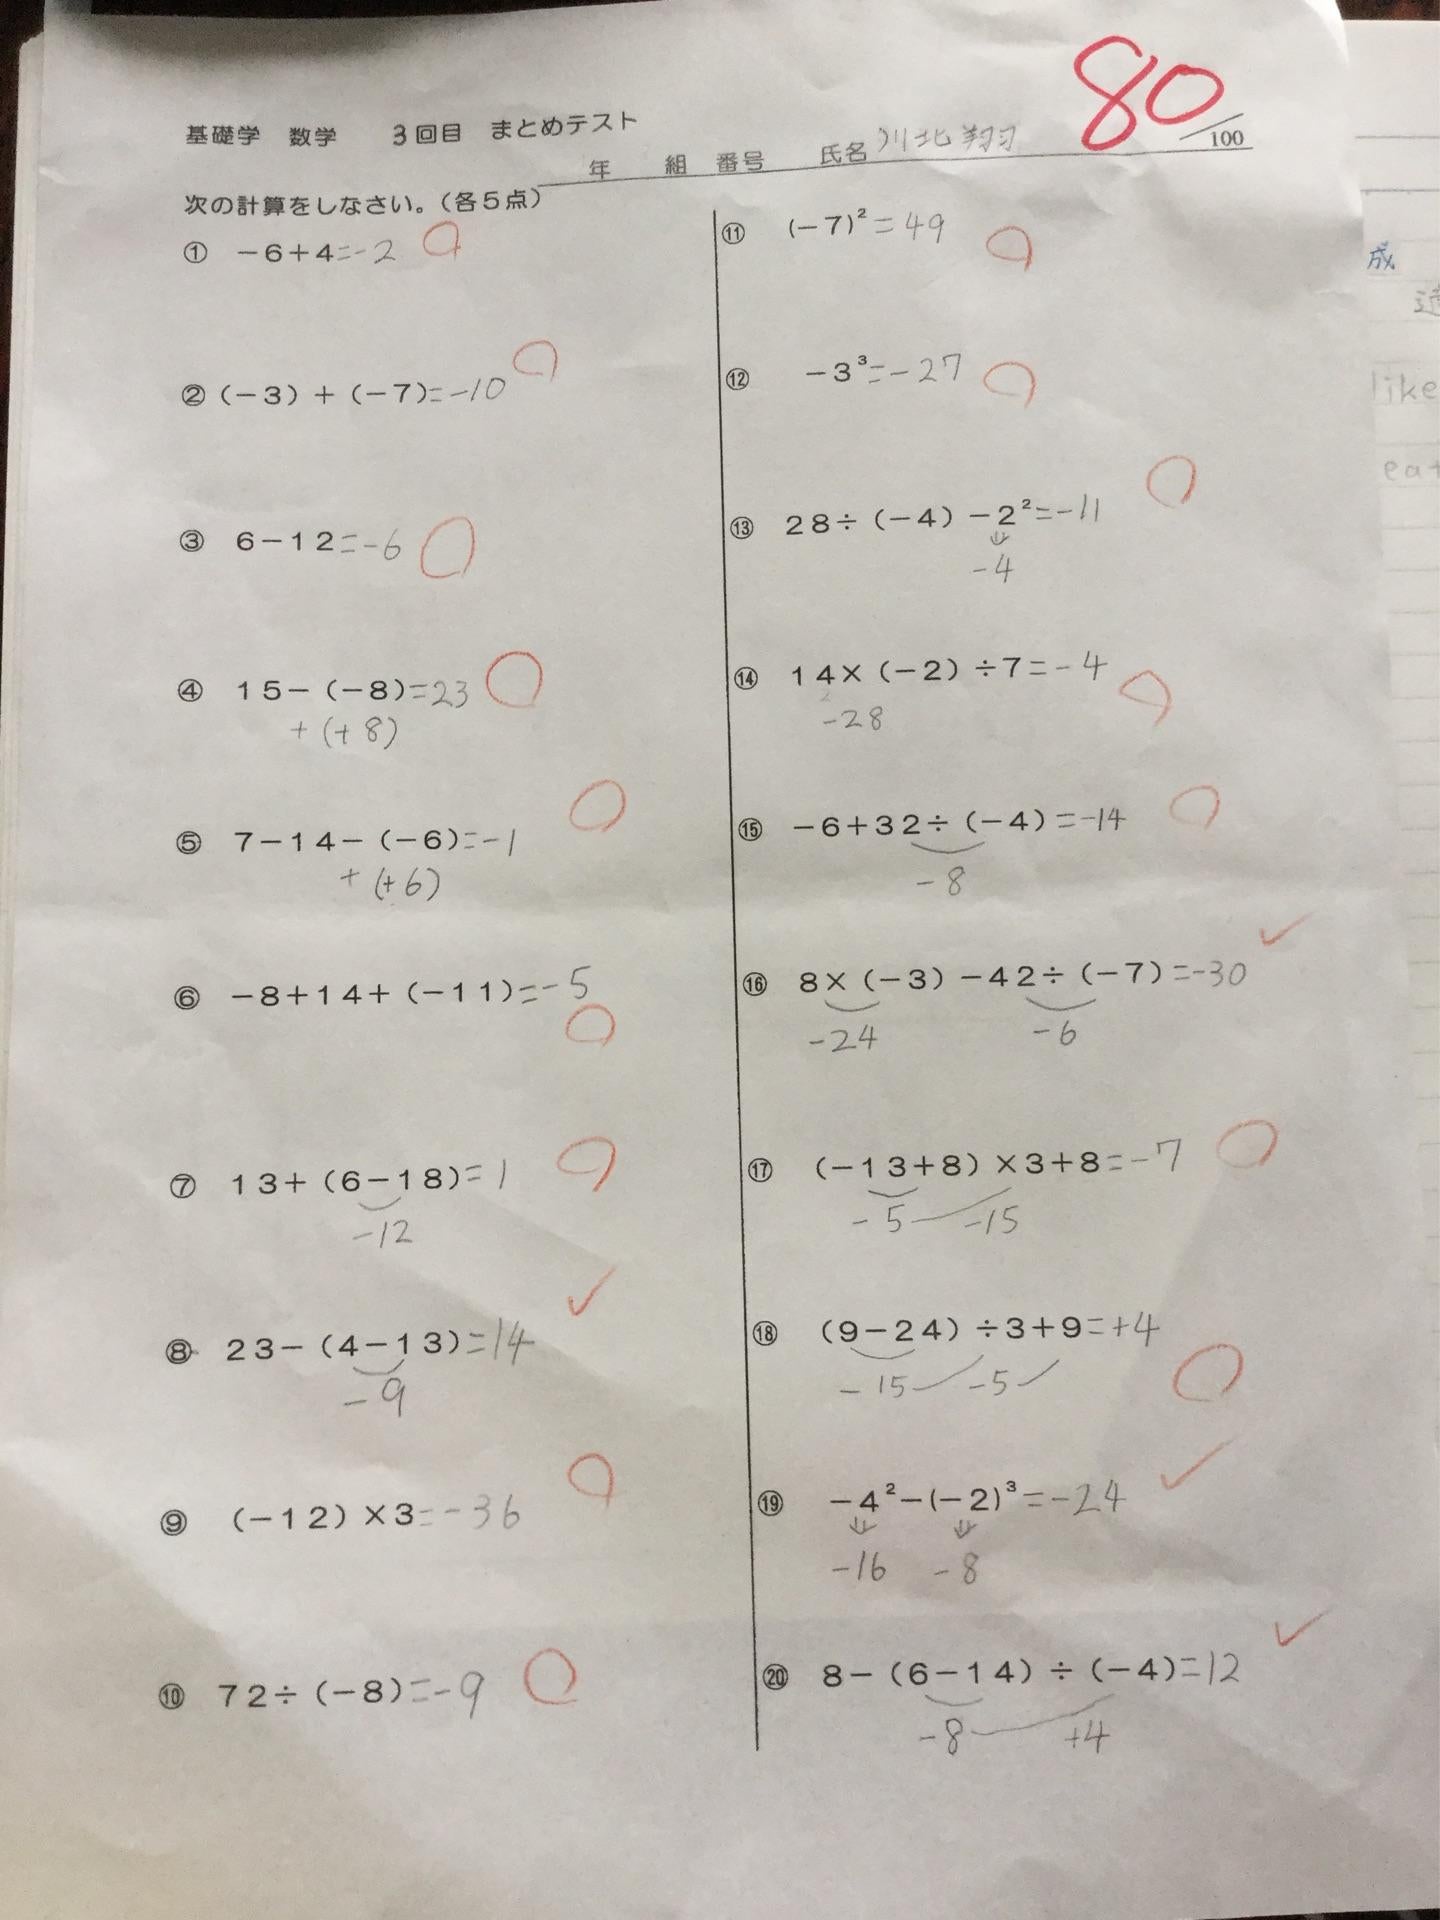 80
/100
基礎学 数学 3回目 まとめテスト
年 組 番号 氏名 川北翔
次の計算をしなさい。(各5点)
① −6+4=-2
② (−3)+(−7)=-10
③ 6−12=-6
④ 15−(−8)=23
+(+8)
⑤ 7−14−(−6)=-1
+(+6)
⑥ −8+14+(−11)=-5
⑦ 13+(6−18)=1
-12
⑧ 23−(4−13)=14
-9
⑨ (−12)×3=-36
⑩ 72÷(−8)=-9
⑪ (−7)²=49
⑫ −3³=-27
⑬ 28÷(−4)−2²=-11
-4
⑭ 14×(−2)÷7=-4
-28
⑮ −6+32÷(−4)=-14
-8
⑯ 8×(−3)−42÷(−7)=-30
-24 -6
⑰ (−13+8)×3+8=-7
-5 -15
⑱ (9−24)÷3+9=+4
-15 -5
⑲ −4²−(−2)³=-24
-16 -8
⑳ 8−(6−14)÷(−4)=12
-8 +4
成
like
eat